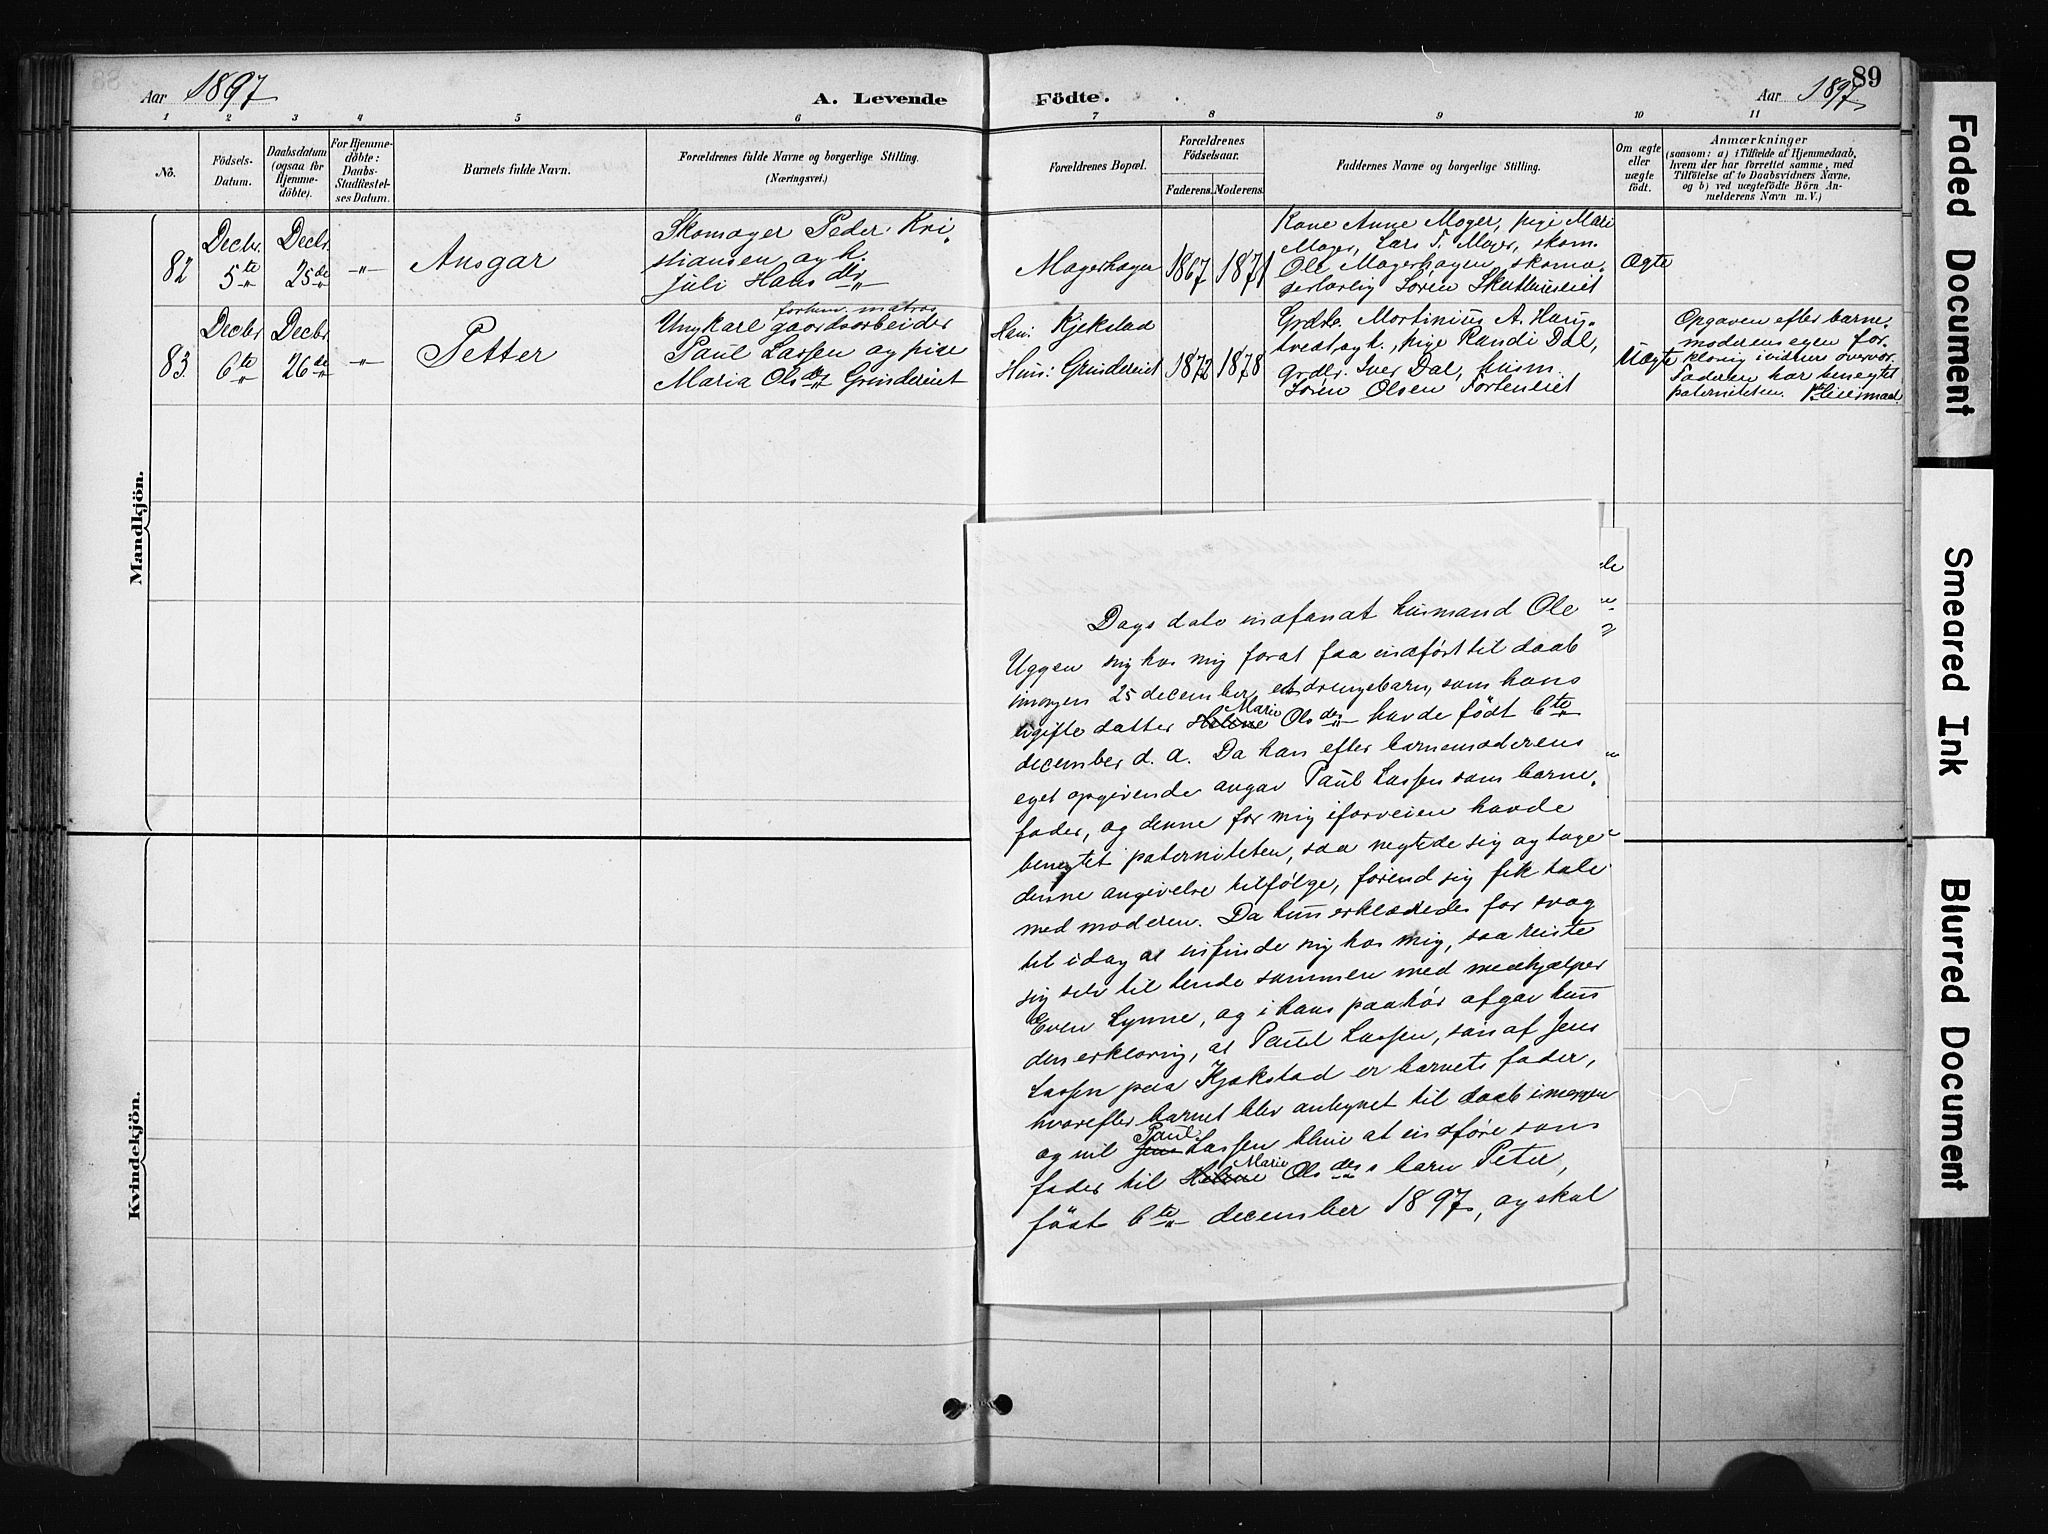 Aar 1897
A. Levende
Födte.
Aar 1897
89
1 2 3 4 5 6 7 8 9 10 11
No.
Födsels-
Datum.
Daabsdatum
(ogsaa for
Hjemme-
döbte).
For Hjemme-
döbte:
Daabs-
Stadfæstel-
ses Datum.
Barnets fulde Navn.
Forældrenes fulde Navne og borgerlige Stilling.
(Næringsvei.)
Forældrenes Bopæl.
Forældrenes
Födselsaar.
Faderens. Moderens.
Faddernes Navne og borgerlige Stilling.
Om ægte
eller
uægte
födt.
Anmærkninger
(saasom: a) i Tilfælde af Hjemmedaab,
hvem der har forrettet samme, med
Tilföielse af to Daabsvidners Navne,
og b) ved uægtefödte Börn An-
melderens Navn m. V.)
Mandkjön.
82
Decbr.
5te
Decbr.
25de
-"-
Ansgar
Skomager Peder Kri-
stiansen og h.
Juli Hansdtr
Magerhagen
1867
1871
Kone Anne Moger, pige Mari
Moger, Lars T. Moger, skom.
Ole Magerhagen, skoma-
gerlærling Sören
Ægte
83.
Decbr
6te
Decbr
26de
-"-
Petter
forhen. matros
Ungkarl gaardsarbeider
Paul Lassen og pige
Maria Olsdtr Grindereiet
Han: Kjekstad
Hun: Grindereiet
1872
1878
Grdbr. Mortinius A. Haug-
tvedt og k., pige Randi Dal,
grdbr. Iver Dal, husm.
Sören Olsen Torteneiet
Uægte
Opgaven efter barne-
moderens egen for-
klaring i vidners overvær.
Faderen har benegtet
paterniteten. 1ste leiermaal.
Dags dato indfandt husmand Ole
Uggen sig hos mig forat faa indført til daab
imorgen 25 december, et drengebarn, som hans
ugifte datter Helene Marie Olsdtr havde født 6te
december d. a. Da han efter barnemoderens
eget opgivende angav Paul Lassen som barne-
fader, og denne for mig iforveien havde
benegtet paterniteten, saa negtede jeg at tage
denne angivelse tilfølge, førend jeg fik tale
med moderen. Da hun erklæredes for svag
til idag at indfinde sig hos mig, saa reiste
jeg selv til hende sammen med medhjælper
Even Lynne, og i hans paahør afgav hun
den erklæring, at Paul Lassen, søn af Jens
Lassen paa Kjekstad er barnets fader,
hvorefter barnet blev antegnet til daab imorgen
og vil Jens Paul Lassen blive at indføre som
fader til Helene Marie Olsdtrs barn Peter,
født 6te december 1897, og skal
Kvindekjön.
Faded Document
Smeared Ink
Blurred Document